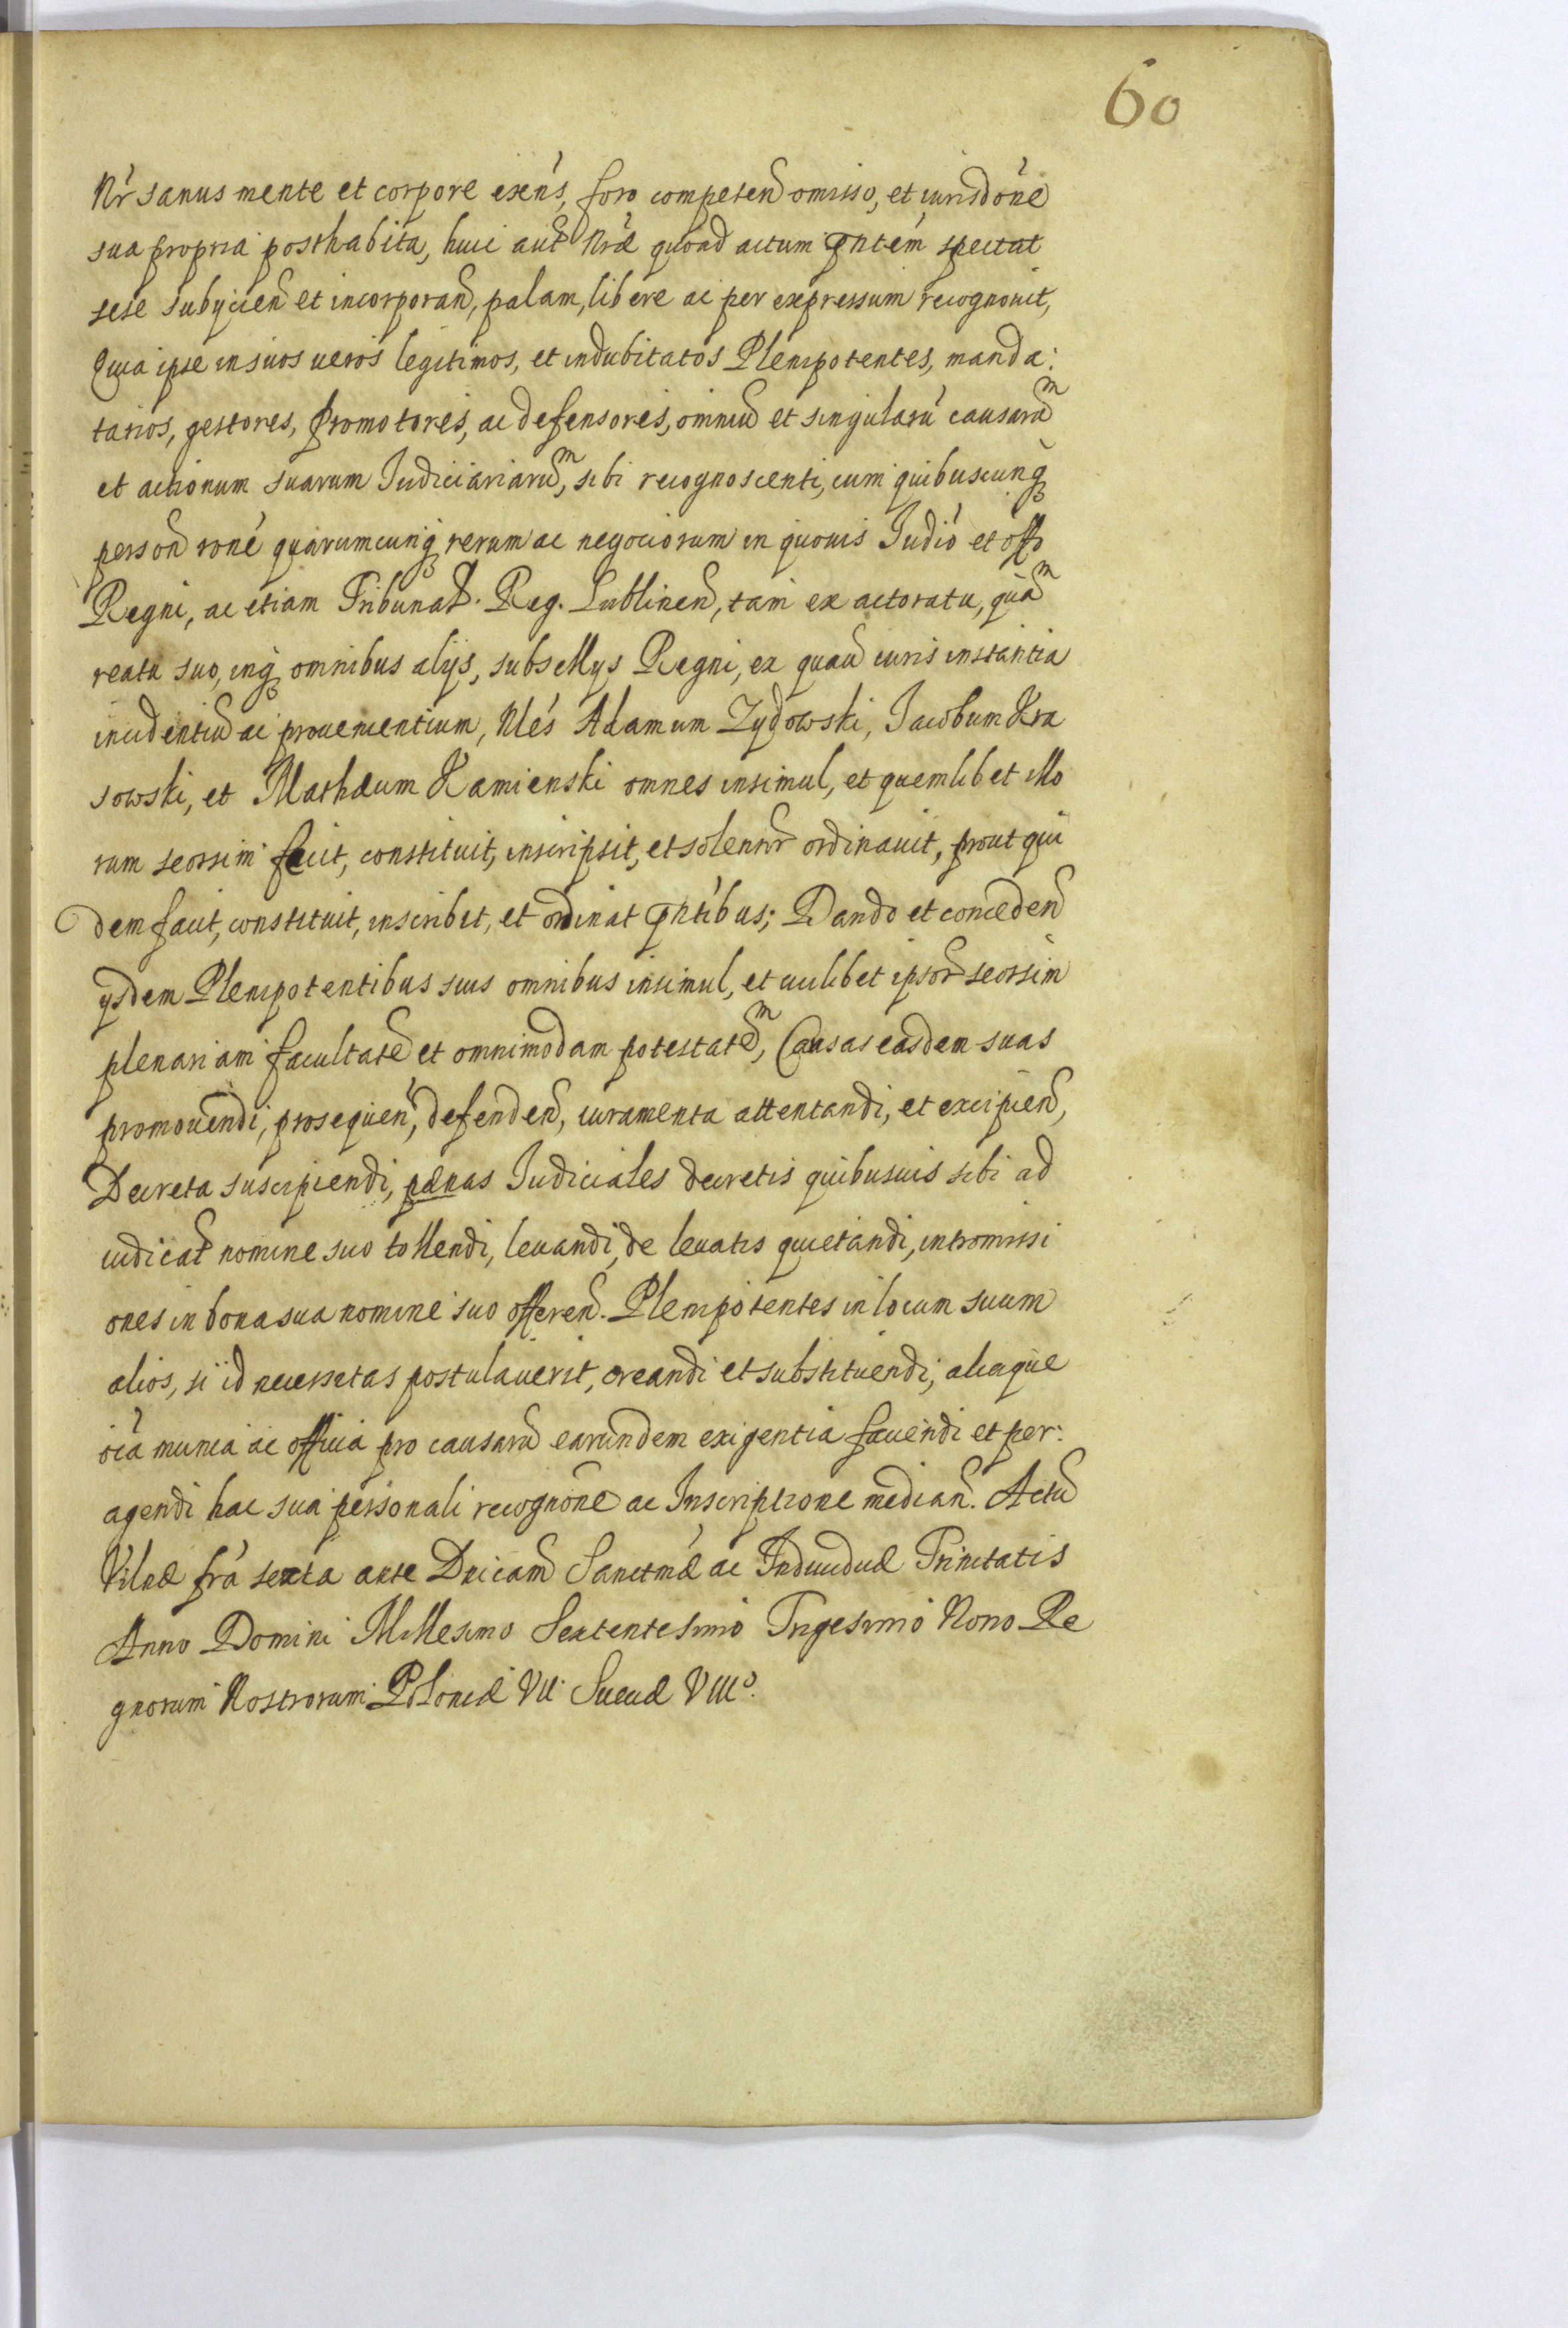 60
Nr̃ sanus mente et corpore exẽns, foro competeñ omisso, et iurisdõne
sua propria posthabita, huic aut̃ Nræ quoad actum p̃ntem spectat
sese subijcieñ et incorporañ, palam, libere ac per expressum recognouit,
Quia ipse in suos ueros legitimos, et indubitatos Plenipotentes, manda:
tarios, gestores, promotores, ac defensores, omniũ et singularũ causarũm
et actionum suarum Iudiciariarũm, sibi recognoscenti, cum quibuscunq̃
persoñ rõne quarumcunq̃ rerum ac negociorum in quouis Iudiõ et offo
Regni, ac etiam Tribunal. Reg. Lublineñ, tam ex actoratu, quãm
reatu suo, inq̃ omnibus alijs, subsellijs Regni, ex quaũ iuris instantia
incidentiũ ac prouenientium, Nles Adamum Zydowski, Iacobum Kra
sowski, et Mathæum Kamienski omnes insimul, et quemlibet illo
rum seorsim fecit, constituit, inscripsit, et solennr̃ ordinauit, prout qui
dem facit, constituit, inscribit, et ordinat p̃ntibus; Dando et concedeñ
ijsdem Plenipotentibus suis omnibus insimul, et cuilibet ipsor̃ seorsim
plenariam facultatẽ et omnimodam potestatẽm, Causas easdem suas
promouendi, prosequeñ, defendeñ, iuramenta attentandi, et excipieñ,
Decreta suscipiendi, pænas Iudiciales decretis quibusuis sibi ad
iudicat̃ nomine suo tollendi, leuandi, de leuatis quietandi, intromissi
ones in bona sua nomine suo offereñ. Plenipotentes in locum suum
alios, si id necessitas postulauerit, creandi et substituendi, aliaque
oĩa munia ac officia pro causarũ earundem exigentia faciendi et per:
agendi hac sua personali recognõne ac Inscriptione mediañ. Actũ
Vilnæ frã sexta ante Dnicam̃ Sanctmæ ac Indiuiduæ Trinitatis
Anno Domini Millesimo Sextentesimo Trigesimo Nono Re
gnorum Nostrorum Poloniæ VII. Sueciæ VIIIº.